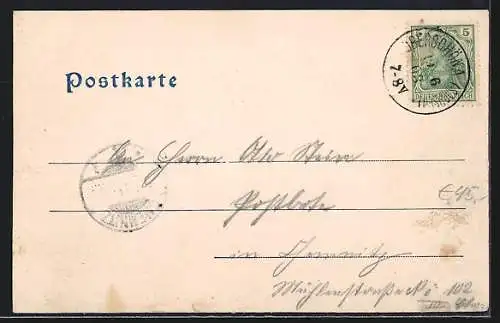 5
7-8 V.
Postkarte
An Herrn Otto Stein
Postbote
€45,-
in Chemnitz
Mühlenstraße 102
CHEMNITZ